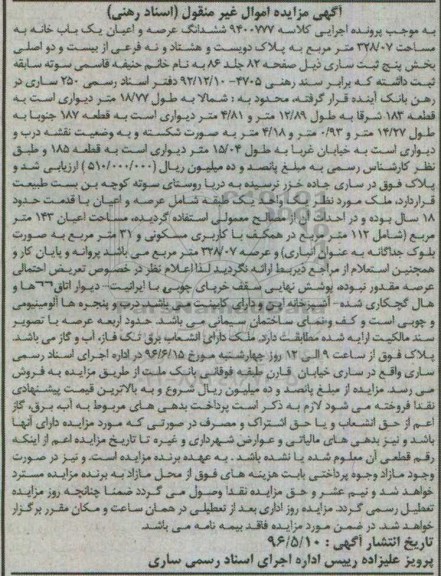 آگهی مزایده اموال غیر منقول (اسناد رهنی)
به موجب پرونده اجرایی کلاسه ۹۴۰۰۷۷۷ ششدانگ عرصه و اعیان یک باب خانه به
مساحت ۳۲۸/۰۷ متر مربع به پلاک دویست و هشتاد و نه فرعی از بیست و دو اصلی
بخش پنج ثبت ساری ذیل صفحه ۸۲ جلد ۸۶ به نام خانم حنیفه قاسمی سوته سابقه
ثبت داشته که برابر سند رهنی ۴۷۰۵- ۹۲/۱۲/۱۰ دفتر اسناد رسمی ۲۵۰ ساری در
رهن بانک آینده قرار گرفته، محدود به : شمالا به طول ۱۸/۷۷ متر دیواری است به
قطعه ۱۸۳ شرقا به طول ۱۲/۸۹ متر و ۴/۸۱ متر دیواری است به قطعه ۱۸۷ جنوبا به
طول ۱۴/۲۷ متر و ۰/۹۳ متر و ۴/۱۸ متر به صورت شکسته و به وضعیت نقشه درب و
دیواری است به خیابان غربا به طول ۱۵/۰۴ متر دیواری است به قطعه ۱۸۵ و طبق
نظر کارشناس رسمی به مبلغ پانصد و ده میلیون ریال (۵۱۰/۰۰۰/۰۰۰) ارزیابی شد و
پلاک فوق در ساری جاده خزر نرسیده به دریا روستای سوته کوچه بن بست طبیعت
قرار دارد، ملک مورد نظر یک واحد یک طبقه شامل عرصه و اعیان با قدمت حدود
۱۸ سال بوده و در احداث آن از مصالح معمولی استفاده گردیده، مساحت اعیان ۱۴۳ متر
مربع (شامل ۱۱۲ متر مربع در همکف با کاربری مسکونی و ۳۱ متر مربع به صورت
بلوک جداگانه به عنوان انباری) و عرصه ۳۲۸/۰۷ متر مربع می باشد پروانه و پایان کار و
همچنین استعلام از مراجع ذیربط ارائه نگردید لذا اعلام نظر در خصوص تعریض احتمالی
عرصه مقدور نبوده، پوشش نهایی سقف خرپای چوبی با ایرانیت- دیوار اتاق ها و
هال گچکاری شده- آشپزخانه اپن و دارای کابینت می باشد. درب و پنجره ها آلومینیومی
و چوبی است و کف و نمای ساختمان سیمانی می باشد. حدود اربعه عرصه با تصویر
سند مالکیت ارایه شده مطابقت دارد. ملک دارای انشعاب برق تک فاز، آب و گاز می باشد.
پلاک فوق از ساعت ۹ الی ۱۲ روز چهارشنبه مورخ ۹۶/۶/۱۵ در اداره اجرای اسناد رسمی
ساری واقع در ساری خیابان قارن طبقه فوقانی بانک ملت از طریق مزایده به فروش
می رسد. مزایده از مبلغ پانصد و ده میلیون ریال شروع و به بالاترین قیمت پیشنهادی
نقدا فروخته می شود لازم به ذکر است پرداخت بدهی های مربوط به آب، برق، گاز
اعم از حق انشعاب و یا حق اشتراک و مصرف در صورتی که مورد مزایده دارای آنها
باشد و نیز بدهی های مالیاتی و عوارض شهرداری و غیره تا تاریخ مزایده اعم از اینکه
رقم قطعی آن معلوم شده یا نشده باشد . به عهده برنده مزایده است. و نیز در صورت
وجود مازاد وجوه پرداختی بابت هزینه های فوق از محل مازاد به برنده مزایده مسترد
خواهد شد و نیم عشر و حق مزایده نقدا وصول می گردد ضمنا چنانچه روز مزایده
تعطیل رسمی گردد، مزایده روز اداری بعد از تعطیلی در همان ساعت و مکان مقرر برگزار
خواهد شد. در ضمن مورد مزایده فاقد بیمه نامه می باشد.
تاریخ انتشار آگهی : ۹۶/۵/۱۰
پرویز علیزاده رییس اداره اجرای اسناد رسمی ساری